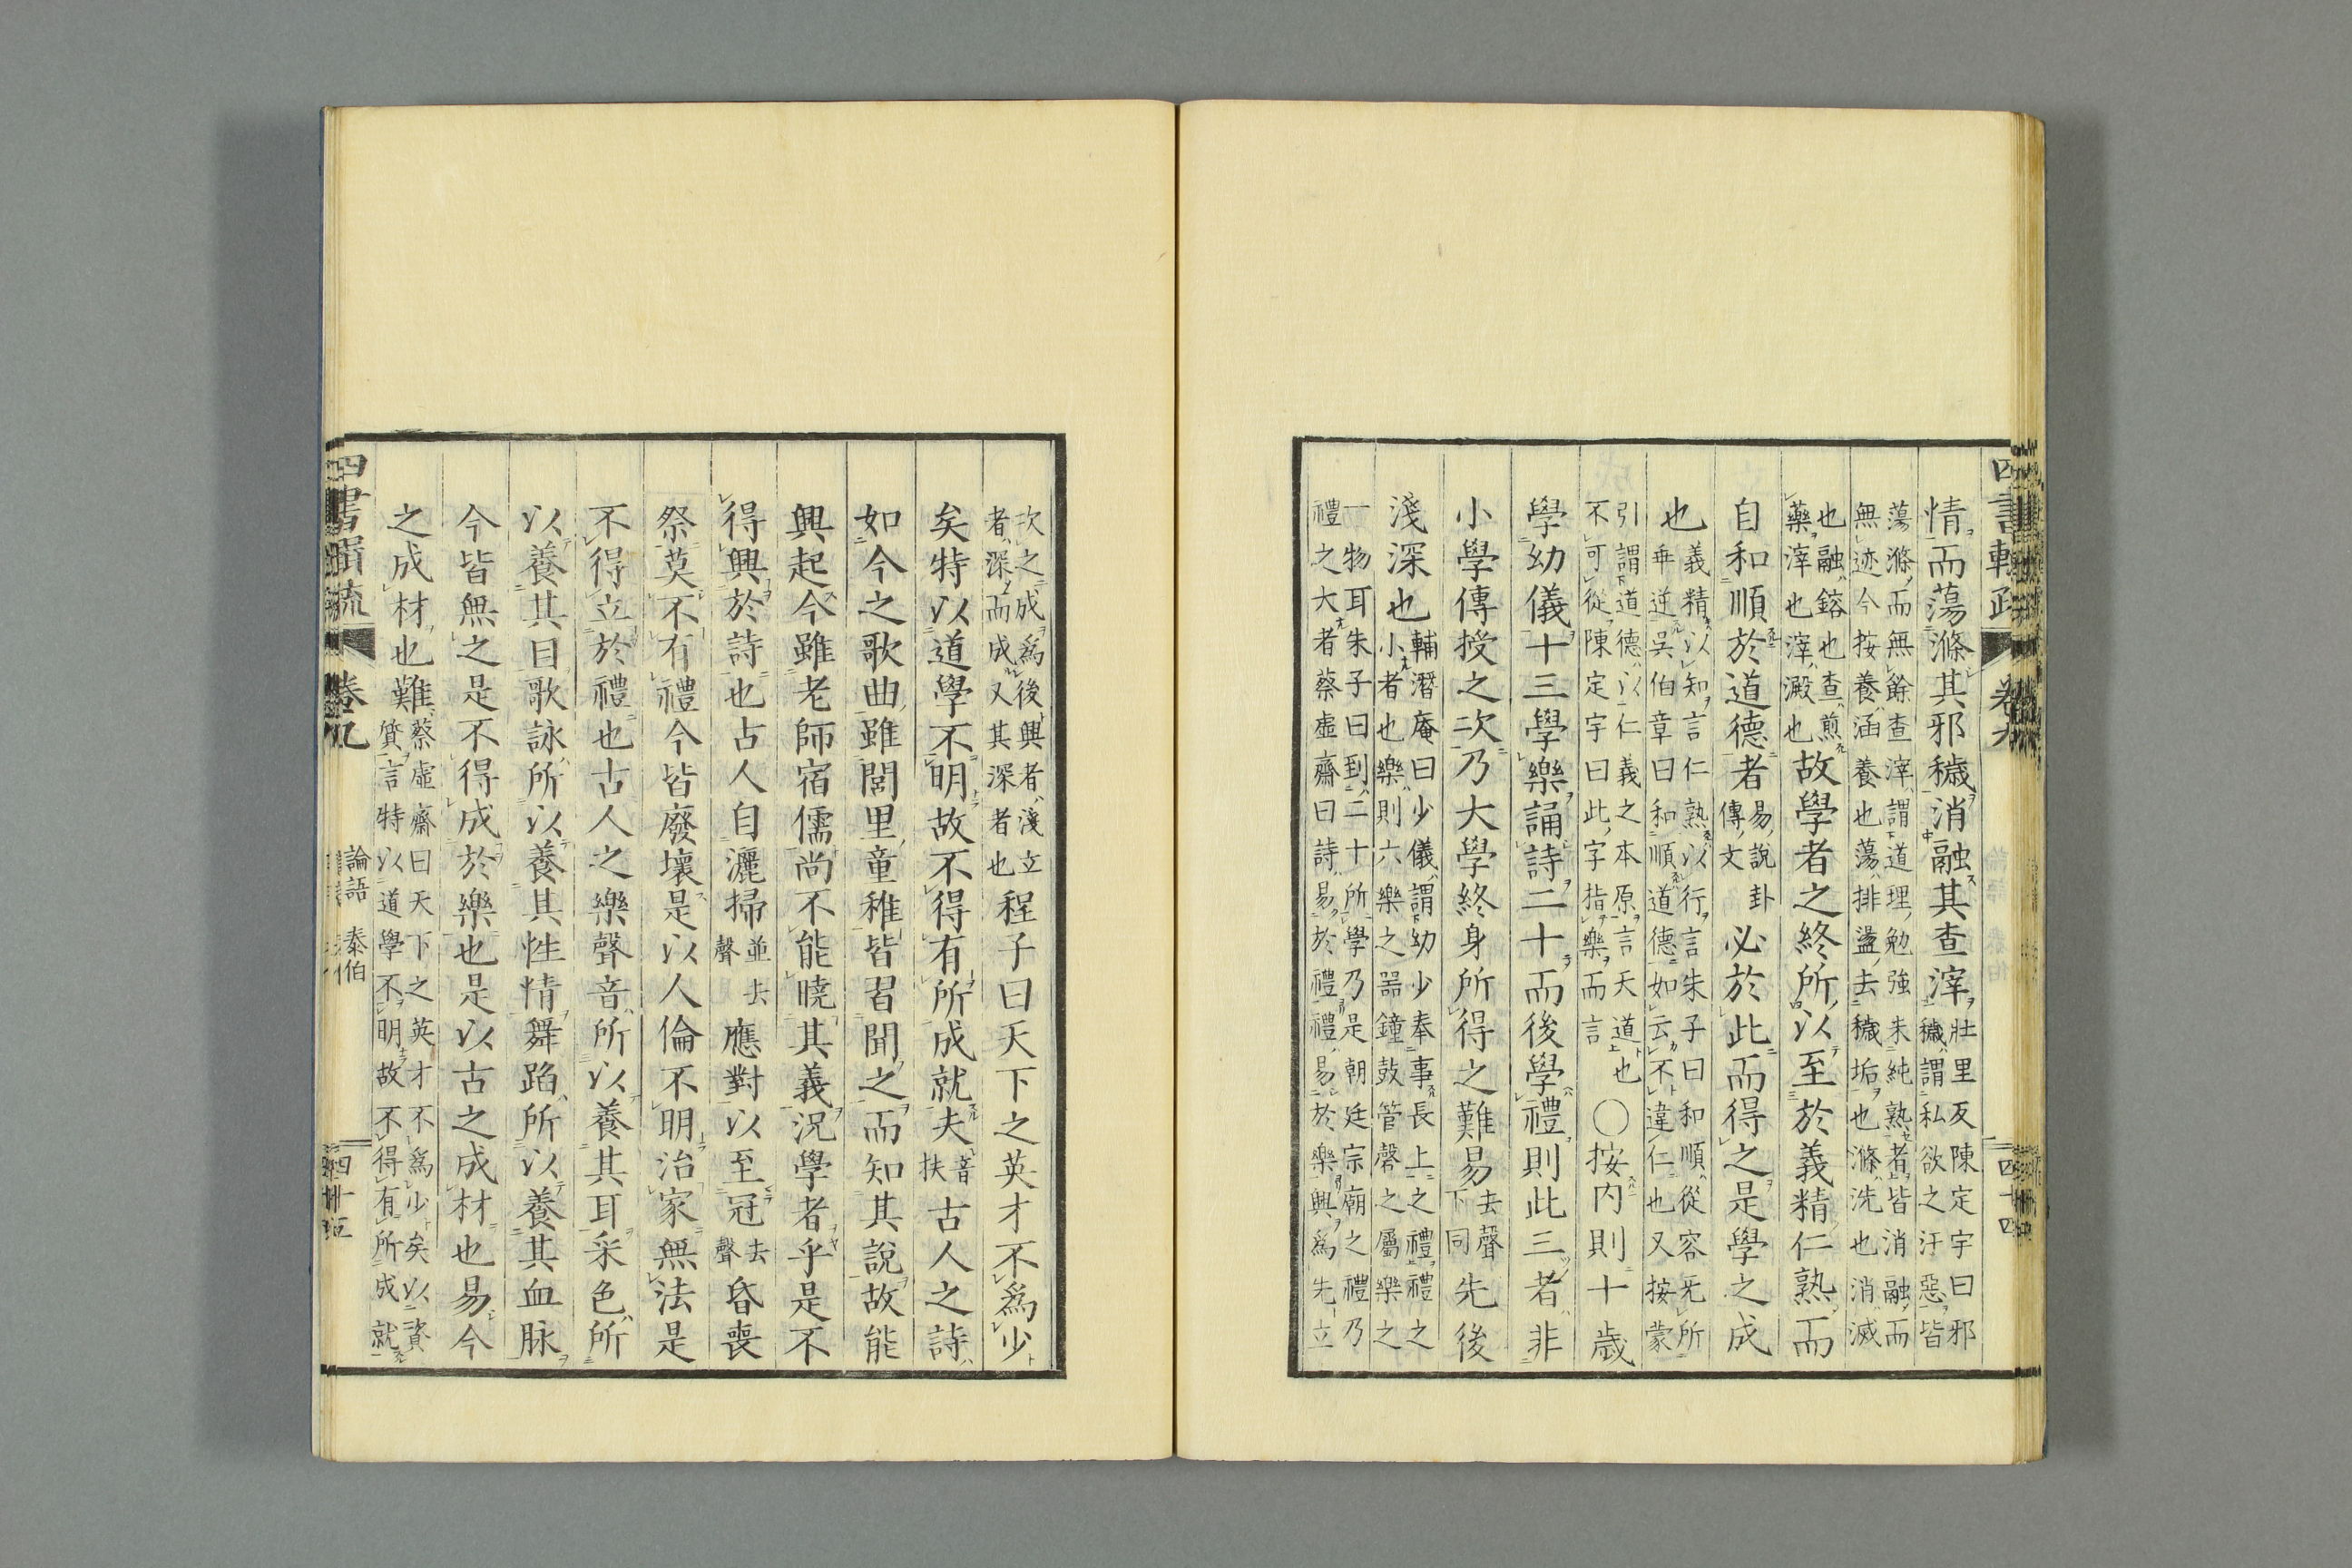 四書輯疏 卷九 四十四
情而蕩滌其邪穢消融其査滓壯里反陳定宇曰邪穢謂私欲之汙惡皆
蕩滌而無餘査滓謂道理勉強未純熟者皆消融而無迹今按養涵養也蕩排盪去穢垢也滌洗也消滅
也融鎔也査煎藥滓也滓澱也故學者之終所以至於義精仁熟而
自和順於道德者易說卦傳文必於此而得之是學之成
也義精以知言仁熟以行言朱子曰和順從容无所乖逆吳伯章曰和順道德如云不違仁也又按蒙
引謂道德以仁義之本原言天道也不可從陳定宇曰此字指樂而言○按内則十歲
學幼儀十三學樂誦詩二十而後學禮則此三者非
小學傳授之次乃大學終身所得之難易去聲下同先後
淺深也輔潛庵曰少儀謂幼少奉事長上之禮禮之小者也樂則六樂之器鐘鼓管磬之屬樂之
一物耳朱子曰到二十所學乃是朝廷宗廟之禮乃禮之大者蔡虛齋曰詩易於禮禮易於樂興爲先立
次之成爲後興者淺立者深而成又其深者也程子曰天下之英才不爲少
矣特以道學不明故不得有所成就夫音扶古人之詩
如今之歌曲雖閭里童稚皆習聞之而知其說故能
興起今雖老師宿儒尚不能曉其義況學者乎是不
得興於詩也古人自灑掃並去聲應對以至冠去聲昏喪
祭莫不有禮今皆廢壞是以人倫不明治家無法是
不得立於禮也古人之樂聲音所以養其耳采色所
以養其目歌詠所以養其性情舞蹈所以養其血脉
今皆無之是不得成於樂也是以古之成材也易今
之成材也難蔡虛齋曰天下之英才不爲少矣以資質言特以道學不明故不得有所成就
四書輯疏 卷九 論語 泰伯 四十五